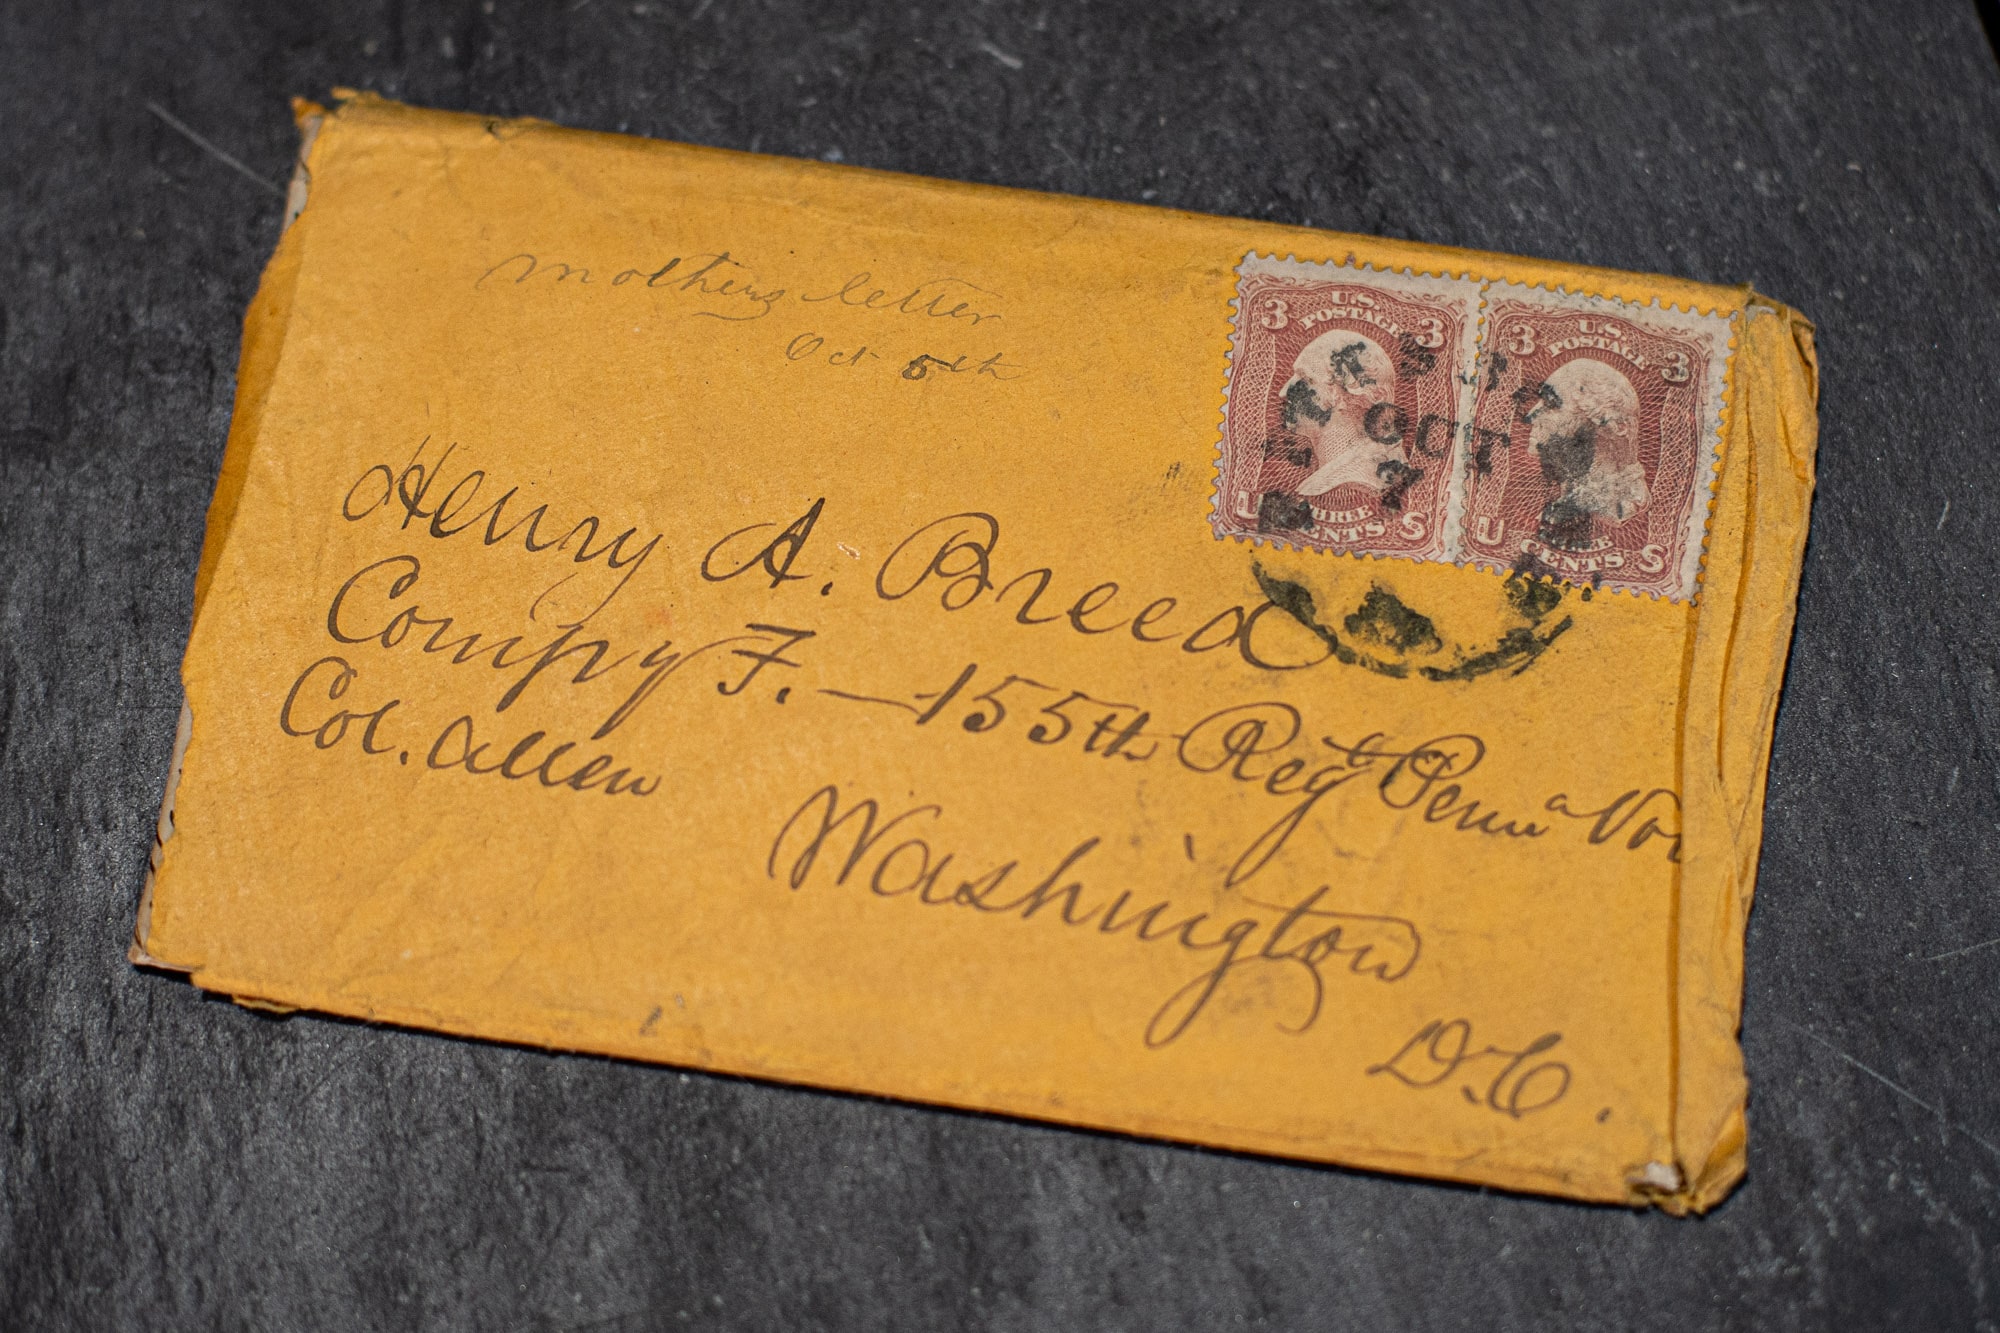 mothers letter
Oct 5th
3 U.S. POSTAGE 3
U THREE CENTS S
3 U.S. POSTAGE 3
U CENTS S
OCT
7
Henry A. Breed
Compy F. — 155th Regt Penna Vol
Col. Allen
Washington
D.C.